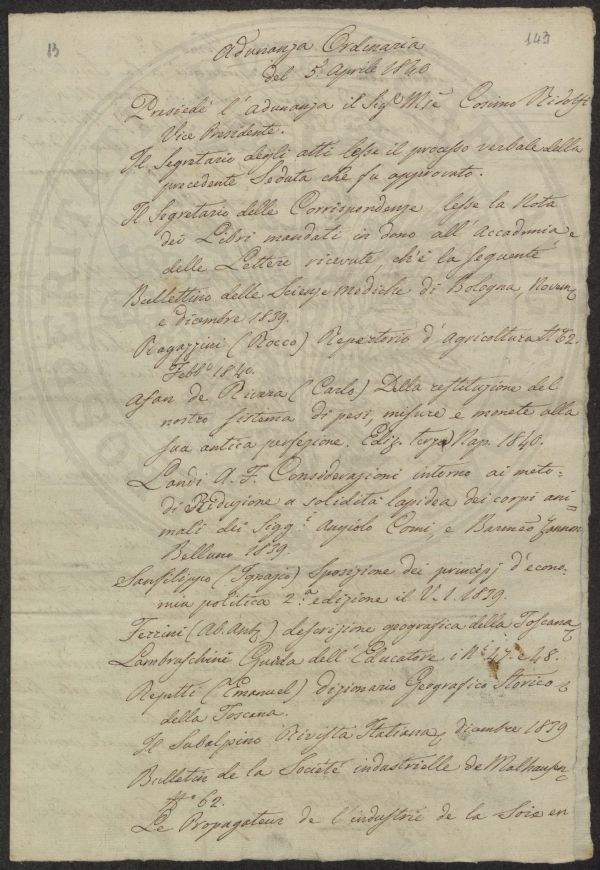 13
143
Adunanza Ordinaria
del 5. Aprile 1840
Presiedè l'Adunanza il Sigr. Mse Cosimo Ridolfi
Vice Presidente.
Il Segretario degli atti lesse il processo verbale della
precedente Seduta che fu approvato.
Il Segretario delle Corrispondenze lesse la Nota
dei Libri mandati in dono all'Accademia e
delle Lettere ricevute, ch'è la seguente
Bullettino delle Scienze mediche di Bologna, Novem
e dicembre 1839.
Ragazzini (Rocco) Repertorio d'Agricoltura N. 62.
Febbo 1840.
Afan de Rivera (Carlo) Della restituzione del
nostro sistema di pesi, misure e monete alla
sua antica perfezione. Ediz. terza Nap. 1840.
Landi A. F. Considerazioni intorno ai meto-
di Riduzione a solidità lapidea dei corpi ani-
mali dei Sigg.i Angiolo Comi, e Barmeo Zanon
Belluno 1839.
Sanfilippo (Ignazio) Sposizione dei principj d'econo-
mia politica 2.a edizione il V. 1. 1839.
Ferrini (Ab. Ant) descrizione geografica della Toscana
Lambruschini Guida dell'Educatore i Ni 47. e 48.
Repetti (Emanuel) dizionario Geografico Storico
della Toscana.
Il Subalpino Rivista Italiana, dicembre 1839
Bulletin de la Société industrielle de Malhausen
No 62.
Le Propagateur de l'industrie de la Soie en